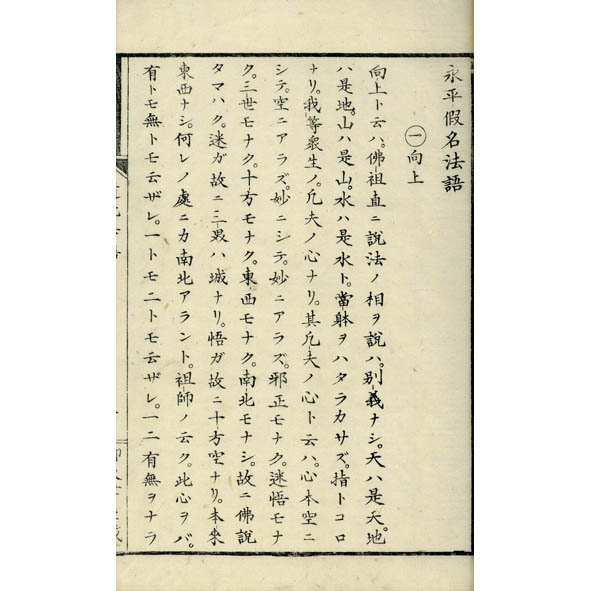 永平假名法語
㊀向上
向上ト云ハ。佛祖直ニ說法ノ相ヲ說ハ。別義ナシ。天ハ是天。地
ハ是地。山ハ是山。水ハ是水ト。當躰ヲハタラカサズ。指トコロ
ナリ。我等衆生ノ。凡夫ノ心ナリ。其凡夫ノ心ト云ハ。心本空ニ
シテ。空ニアラズ。妙ニシテ。妙ニアラズ。邪正モナク。迷悟モナ
ク。三世モナク。十方モナク。東西モナク。南北モナシ。故ニ佛說
タマハク。迷ガ故ニ三界ハ城ナリ。悟ガ故ニ十方空ナリ。本來
東西ナシ。何レノ處ニカ南北アラント。祖師ノ云ク。此心ヲバ。
有トモ無トモ云ザレ。一トモニトモ云ザレ。一二有無ヲナラ